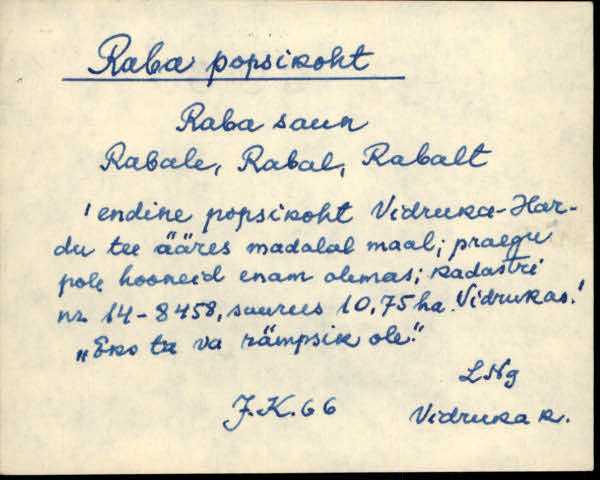 Raba popsikoht
Raba saun
Rabale, Rabal, Rabalt
' endine popsikoht Vidruka-Har-
du tee ääres madalal maal; praegu
pole hooneid enam olemas; kadastri
nr. 14-8458, suurus 10,75 ha. Vidrukas.'
„Eks ta va rämpsik ole."
LNg
J.K. 66
Vidruka k.